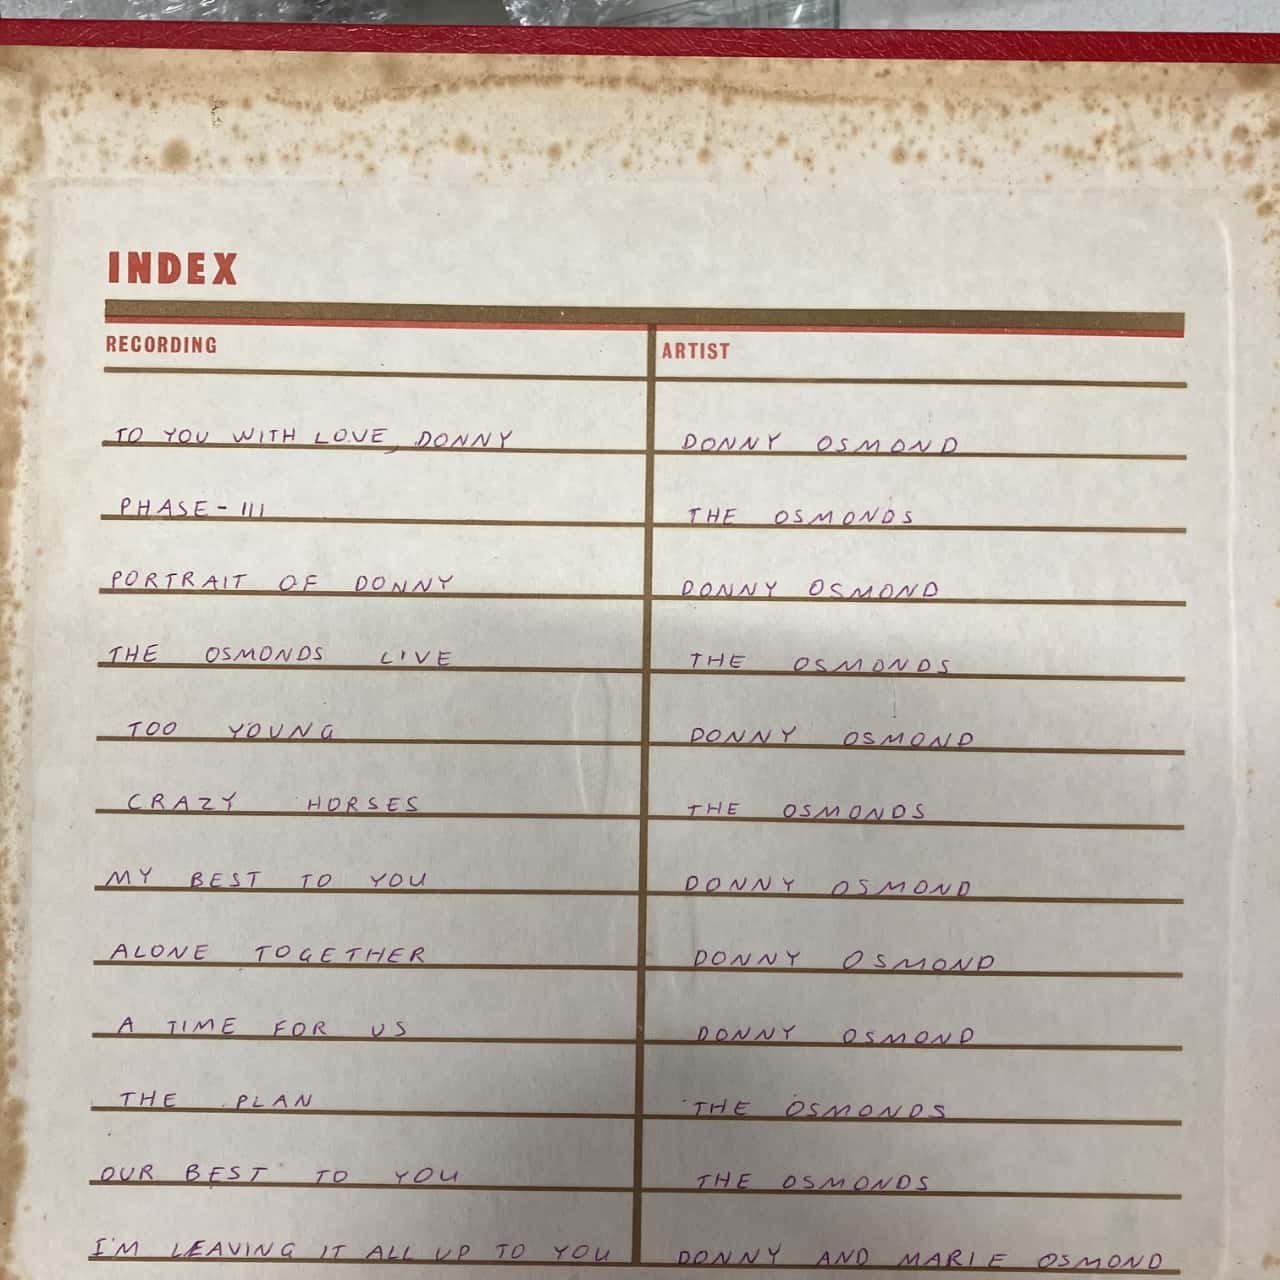 INDEX
RECORDING ARTIST
TO YOU WITH LOVE, DONNY DONNY OSMOND
PHASE-III THE OSMONDS
PORTRAIT OF DONNY DONNY OSMOND
THE OSMONDS LIVE THE OSMONDS
TOO YOUNG DONNY OSMOND
CRAZY HORSES THE OSMONDS
MY BEST TO YOU DONNY OSMOND
ALONE TOGETHER DONNY OSMOND
A TIME FOR US DONNY OSMOND
THE PLAN THE OSMONDS
OUR BEST TO YOU THE OSMONDS
I'M LEAVING IT ALL UP TO YOU DONNY AND MARIE OSMOND